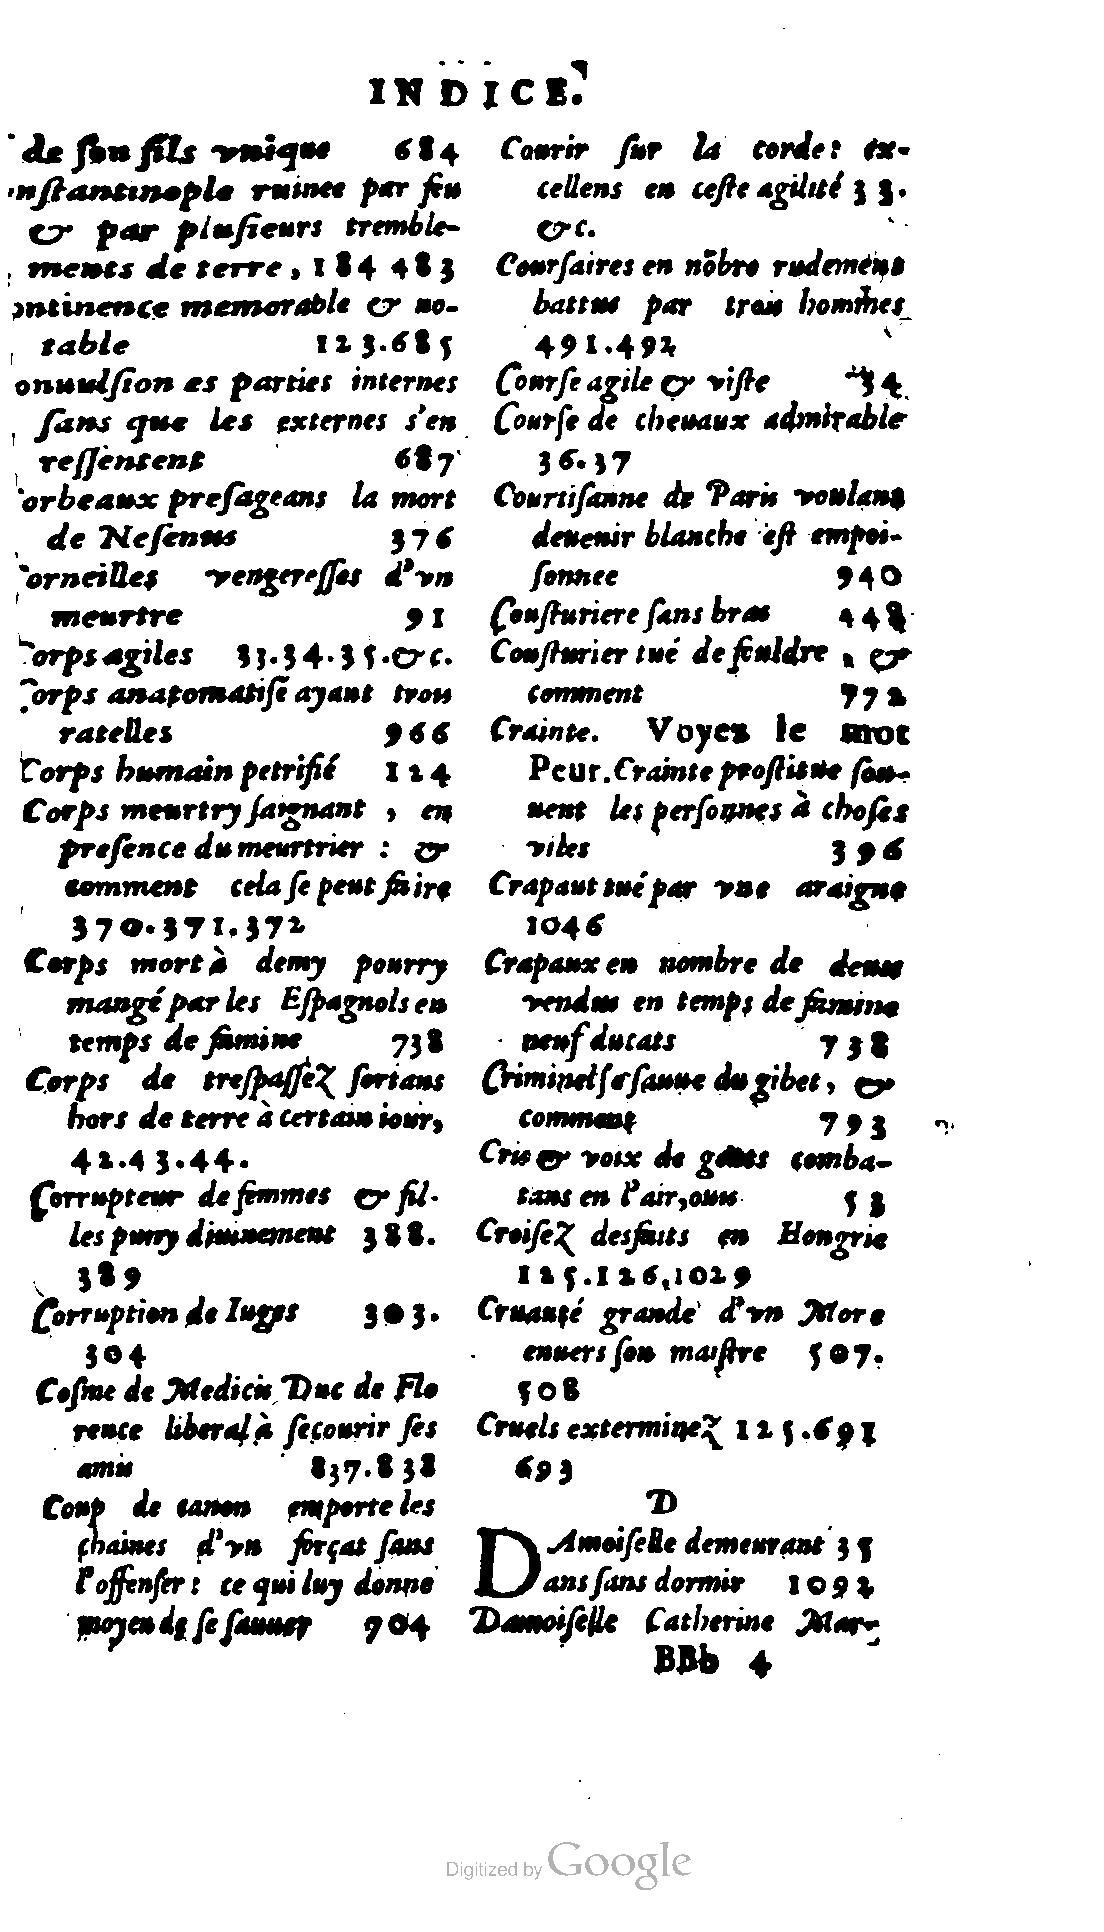 INDICE.
de ſon fils vnique 684
nſtantinople ruinee par feu
& par pluſieurs tremble-
ments de terre, 184 483
ontinence memorable & no-
table 123.685
onuulſion es parties internes
ſans que les externes s'en
reſſentent 687
orbeaux preſageans la mort
de Neſenus 376
orneilles vengereſſes d'vn
meurtre 91
orps agiles 33.34.35.&c.
Corps anatomatiſé ayant trois
ratelles 966
Corps humain petrifié 124
Corps meurtry ſaignant, en
preſence du meurtrier : &
comment cela ſe peut faire
370.371.372
Corps mort à demy pourry
mangé par les Eſpagnols en
temps de famine 738
Corps de treſpaſſeZ ſortans
hors de terre à certain iour,
42.43.44.
Corrupteur de femmes & fil-
les puny diuinement 388.
389
Corruption de Iuges 303.
304
Coſme de Medicis Duc de Flo
rence liberal à ſecourir ſes
amis 837.838
Coup de canon emporte les
chaines d'vn forçat ſans
l'offenſer: ce qui luy donne
moyen de ſe ſauuer 904
Courir ſur la corde: ex-
cellens en ceſte agilité 33.
&c.
Courſaires en nōbre rudement
battus par trois hommes
491.492
Courſe agile & viſte 34
Courſe de cheuaux admirable
36.37
Courtiſanne de Paris voulant
deuenir blanche eſt empoi-
ſonnee 940
Couſturiere ſans bras 448
Couſturier tué de fouldre, &
comment 772
Crainte. Voyez le mot
Peur. Crainte proſtitue ſou-
uent les perſonnes à choſes
viles 396
Crapaut tué par vne araigne
1046
Crapaux en nombre de deux
vendus en temps de famine
neuf ducats 738
Criminel ſe ſauue du gibet, &
comment 793
Cris & voix de gents comba-
tans en l'air, ouis 58
CroiſeZ desfaits en Hongrie
125.126.1029
Cruauté grande d'vn More
enuers ſon maiſtre 507.
508
Cruels extermineZ 125.691
693
D
DAmoiſelle demeurant 35
ans ſans dormir 1092
Damoiſelle Catherine Mar-
BBb 4
Digitized by Google